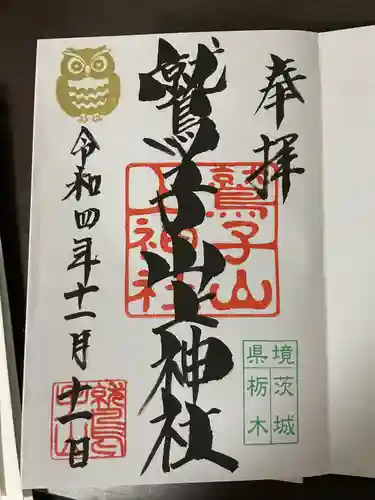 奉拝
鷲子山上神社
鷲子山
上神社
令和四年十一月十一日
境茨城
県栃木